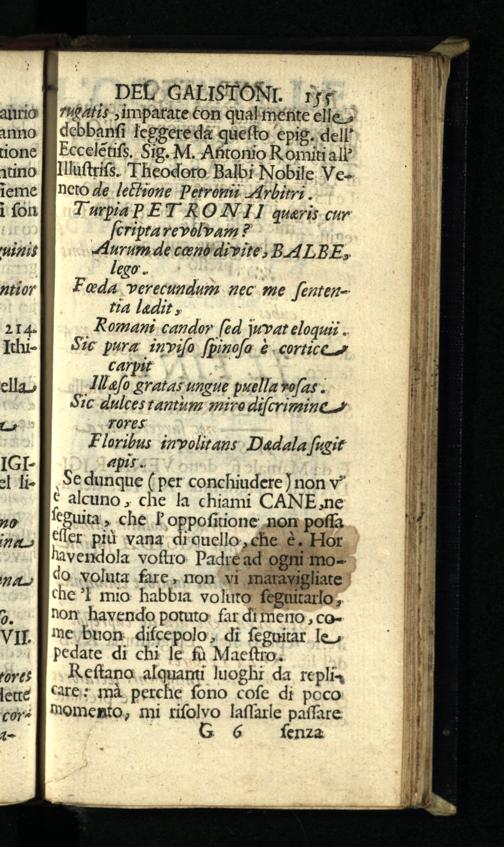 DEL GALISTONI. 155
rugatis, imparate con qual mente elle
debbansi leggere da questo epig. dell'
Eccelẽtiss. Sig. M. Antonio Romiti all'
Illustriss. Theodoro Balbi Nobile Ve-
neto de lectione Petronii Arbitri.
Turpia PETRONII quæris cur
scripta revolvam?
Aurum de cœno divite, BALBE,
lego.
Fœda verecundum nec me senten-
tia lædit,
Romani candor sed juvat eloquii.
Sic pura inviso spinoso è cortice
carpit
Illæso gratas ungue puella rosas.
Sic dulces tantùm miro discrimine
rores
Floribus involitans Dædala sugit
apis.
Se dunque (per conchiudere) non v'
è alcuno, che la chiami CANE, ne
seguita, che l'oppositione non possa
esser più vana di quello, che è. Hor
havendola vostro Padre ad ogni mo-
do voluta fare, non vi maravigliate
che 'l mio habbia voluto seguitarlo,
non havendo potuto far di meno, co-
me buon discepolo, di seguitar le
pedate di chi le fù Maestro.
Restano alquanti luoghi da repli-
care: mà perche sono cose di poco
momento, mi risolvo lassarle passare
G 6 senza
anno
tione
ntino
sieme
i son
guinis
ntior
214.
Ithi-
ella
IGI-
el li-
no
ina
na
so.
VII.
tores
lette
cor-
a-